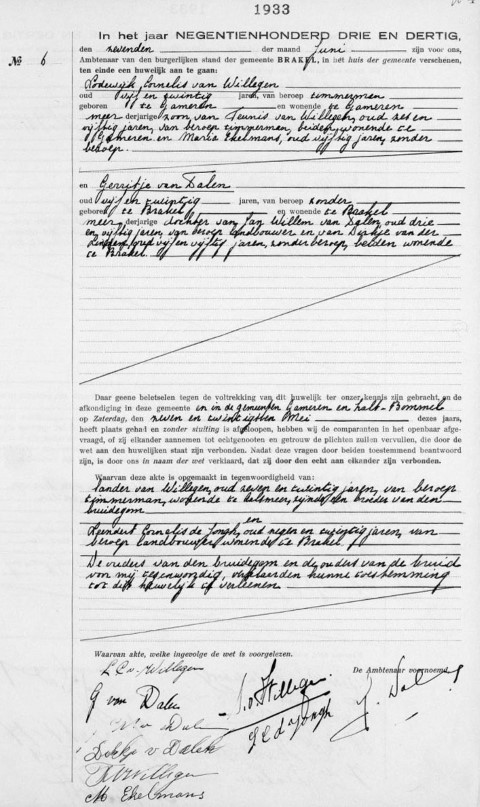 1933
In het jaar NEGENTIENHONDERD DRIE EN DERTIG,
den zevenden der maand Juni zijn voor ons,
Ambtenaar van den burgerlijken stand der gemeente BRAKEL, in het huis der gemeente verschenen,
ten einde een huwelijk aan te gaan:
No. 6
Lodewijk Cornelis van Willegen
oud vijf en twintig jaren, van beroep timmerman
geboren te Gameren en wonende te Gameren
meerderjarige zoon van Teunis van Willegen, oud zes en
vijftig jaren, van beroep timmerman, beiden wonende te
Gameren en Maria Ekelmans, oud vijftig jaren, zonder
beroep.
en Gerritje van Dalen
oud vijf en twintig jaren, van beroep zonder
geboren te Brakel en wonende te Brakel
meerderjarige dochter van Jan Willem van Dalen, oud drie
en vijftig jaren, van beroep landbouwer en van Dirkje van der
oud vijf en vijftig jaren, zonder beroep, beiden wonende
te Brakel.
Daar geene beletselen tegen de voltrekking van dit huwelijk ter onzer kennis zijn gebracht, en de
afkondiging in deze gemeente en in de gemeenten Gameren en Zalt-Bommel
op Zaterdag, den zeven en twintigsten Mei dezes jaars,
heeft plaats gehad en zonder stuiting is afgeloopen, hebben wij de comparanten in het openbaar afge-
vraagd, of zij elkander aannemen tot echtgenooten en getrouw de plichten zullen vervullen, die door de
wet aan den huwelijken staat zijn verbonden. Nadat deze vragen door beiden toestemmend beantwoord
zijn, is door ons in naam der wet verklaard, dat zij door den echt aan elkander zijn verbonden.
Waarvan deze akte is opgemaakt in tegenwoordigheid van:
Sander van Willegen, oud zeven en twintig jaren, van beroep
timmerman, wonende te zijnde een broeder van den
bruidegom
en
Leendert Cornelis de Jongh, oud negen en twintig jaren, van
beroep landbouwer, wonende te Brakel.
De ouders van den bruidegom en de ouders van de bruid
voor mij tegenwoordig, verklaarden hunne toestemming
tot dit huwelijk te verleenen.
Waarvan akte, welke ingevolge de wet is voorgelezen.
De Ambtenaar voornoemd,
L.C. v. Willegen
G van Dalen
S. v. Willegen
L C d Jongh
M. Ekelmans